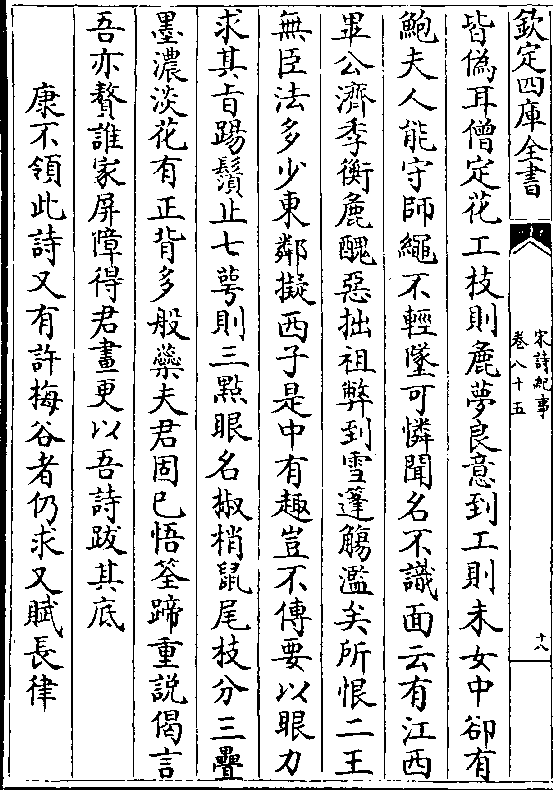 欽定四庫全書
宋詩紀事
卷八十五
十八
皆偽耳僧定花工枝則麄夢良意到工則未女中卻有
鮑夫人能守師繩不輕墜可憐聞名不識面云有江西
畢公濟季衡麄醜惡拙祖弊到雪蓬觴濫矣所恨二王
無臣法多少東鄰擬西子是中有趣豈不傳要以眼力
求其㫖踢鬚止七萼則三㸃眼名椒梢鼠尾枝分三疊
墨濃淡花有正背多般蘂夫君固已悟筌蹄重説偈言
吾亦贅誰家屏障得君畫更以吾詩跋其底
康不領此詩又有許梅谷者仍求又賦長律